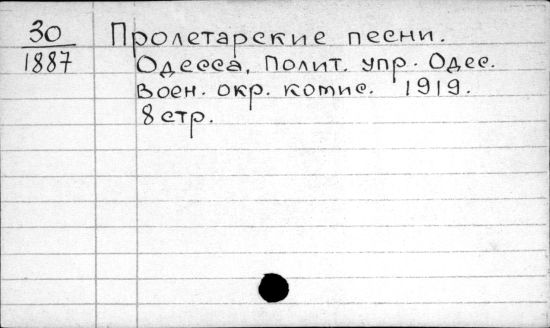 30 Пролетарские песни.
1887 Одесса, Полит. упр. Одес.
Воен. окр. комис. 1919.
8 стр.